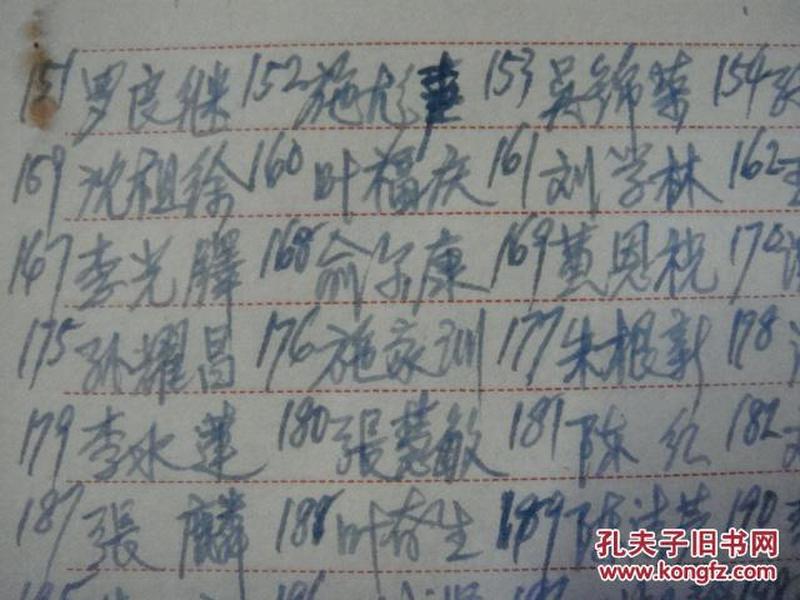 151 罗良继 152 施彪 153 吴锦荣 154
159 沈祖徐 160 叶福庆 161 刘学林 162 王
167 李光 168 俞尔康 169 黄恩税 170
175 孙耀昌 176 施家训 177 朱根新 178
179 李水莲 180 張慧敏 181 陈红 182
187 張麟 188 叶春生 189 陈 190
孔夫子旧书网
www.kongfz.com